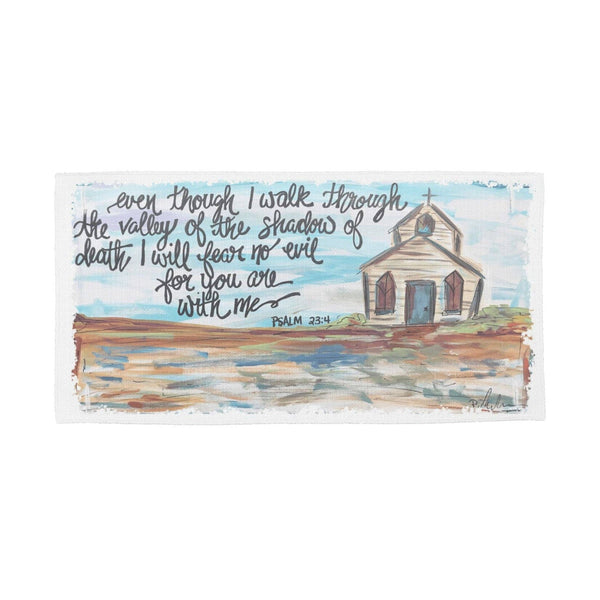 even though I walk through
the valley of the shadow of
death I will fear no evil
for you are
with me
PSALM 23:4